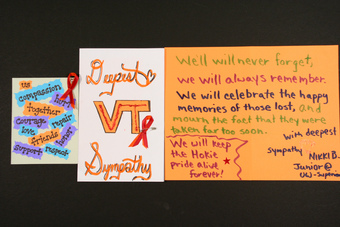 us
compassion
hope
Together
courage
repair
love
friends
support
respect
Deepest
VT
Sympathy
We'll will never forget,
we will always remember.
We will celebrate the happy
memories of those lost, and
mourn the fact that they were
taken far too soon.
We will keep
the Hokie
pride alive
forever!
with deepest
sympathy
Nikki B.
Junior @
UW-Superior